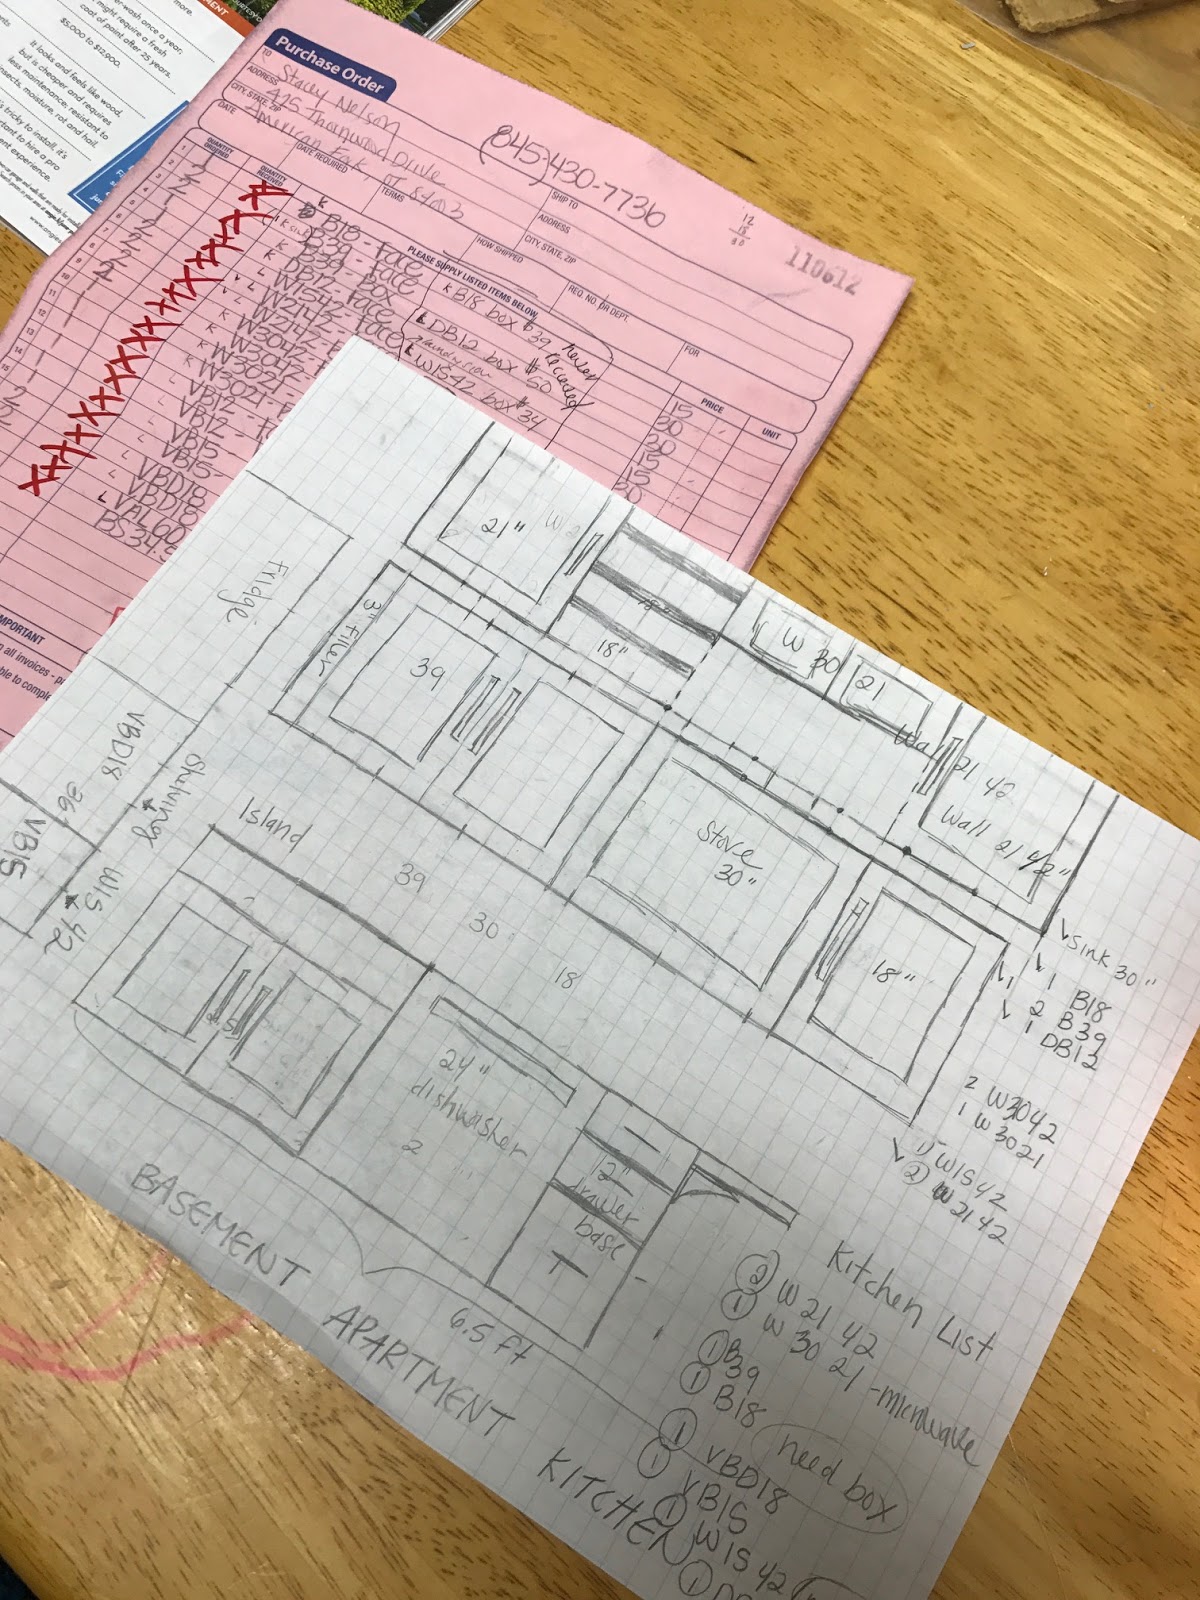 -wash once a year,
might require a fresh
coat of paint after 25 years.
$5,000 to $12,900.
It looks and feels like wood,
but is cheaper and requires
less maintenance; resistant to
insects, moisture, rot and hail.
tricky to install it's
to hire a pro
experience.
Purchase Order
TO Stacey Nelson
ADDRESS 475 Thornwood Drive
CITY, STATE, ZIP American Fork, UT 84003
(845)430-7736
12
15
110612
SHIP TO
ADDRESS
CITY, STATE, ZIP
DATE
DATE REQUIRED
TERMS
HOW SHIPPED
REQ. NO. OR DEPT.
FOR
QUANTITY ORDERED
QUANTITY RECEIVED
PLEASE SUPPLY LISTED ITEMS BELOW
PRICE
UNIT
B18 - Face
B39 - Face
B39 - Box
DB12 - Face
W1542 - Face
W2142 - Face
W3042
W3021
VB12
VB15
VB15
VBD18
VBD18
VAL60
BS34.5
K B18 box $39 never
received
DB12 box $60
W1542 box $34
15
20
20
15
15
20
IMPORTANT
all invoices
21"
18"
W 30
21
Fridge
3" Filler
39
Wall 21 42
Wall 21 42"
Stove
30"
18"
Shelving
VBD18 36
VB15
W15 42
Island
39
30
18
24"
dishwasher
2
12"
drawer
base
6.5 ft
sink 30"
1 B18
2 B39
1 DB12
2 W3042
1 W3021
1 W1542
2 W2142
Kitchen List
2 W 21 42
1 W 30 21 - microwave
1 B39
1 B18
need box
1 VBD18
1 VB15
1 W15 42
1
BASEMENT APARTMENT
KITCHEN